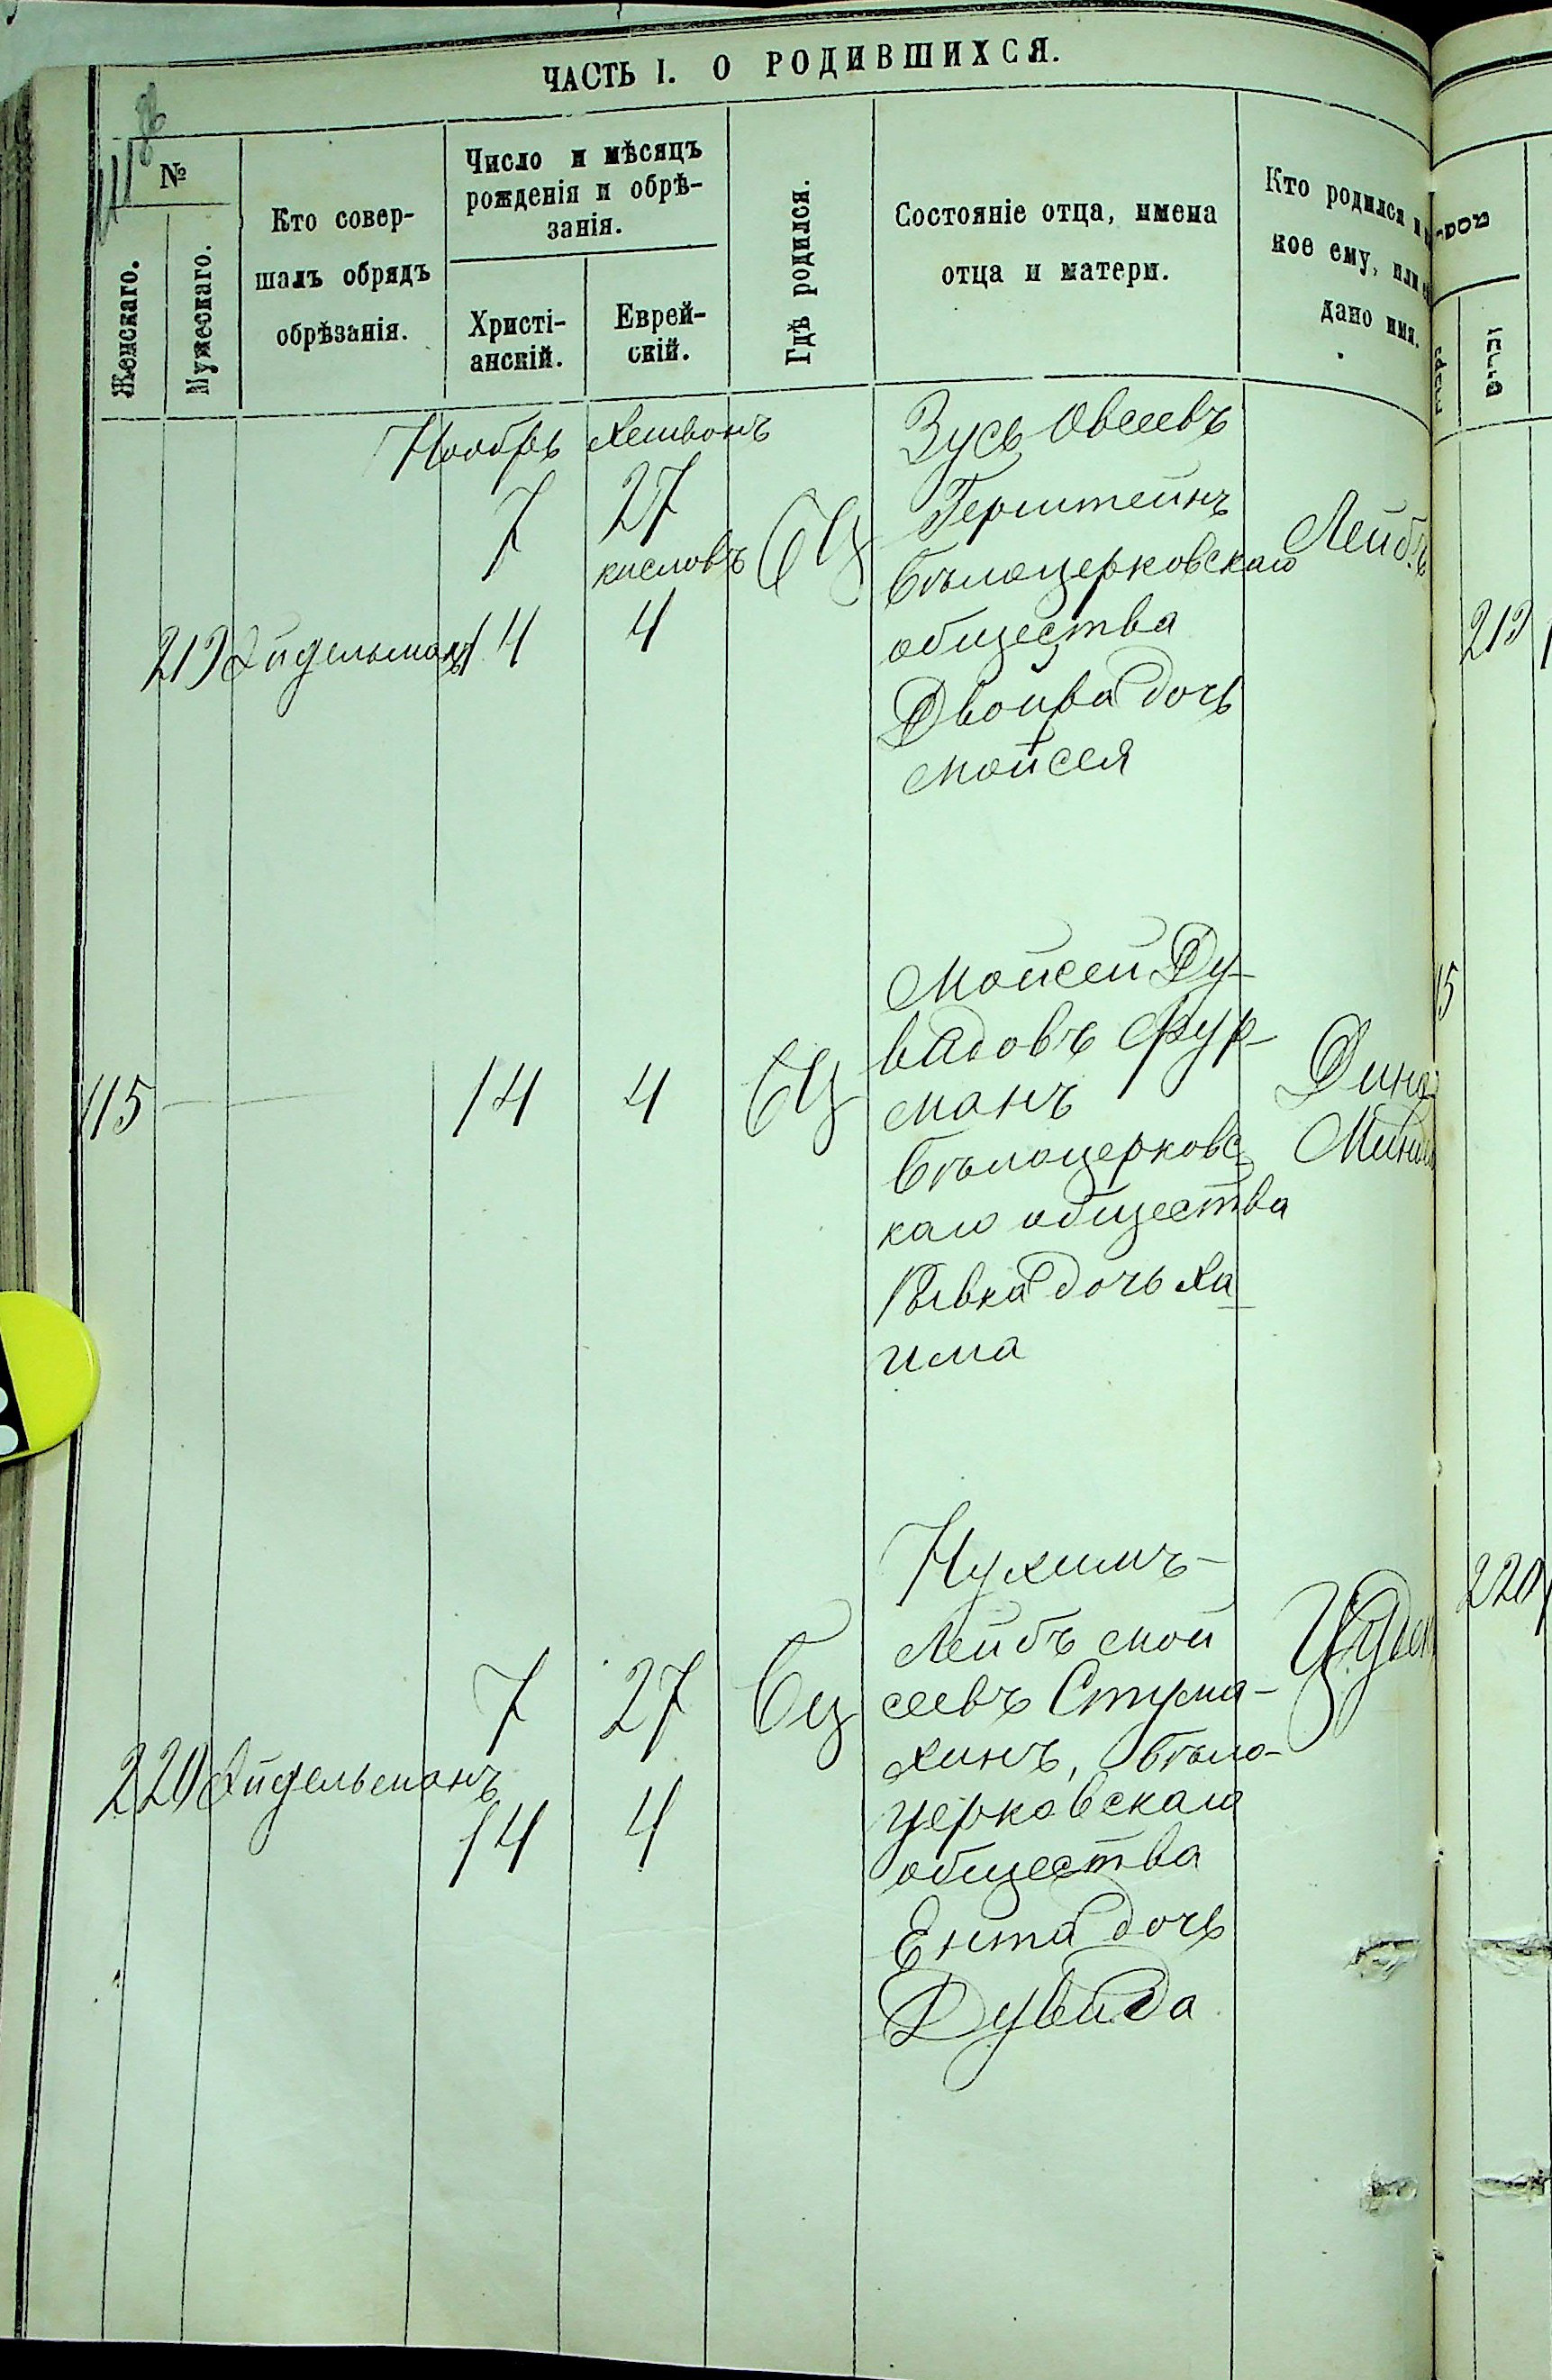 ЧАСТЬ I. О РОДИВШИХСЯ.
№
Женскаго.
Мужескаго.
Кто совер-
шалъ обрядъ
обрѣзанія.
Число и мѣсяцъ
рожденія и обрѣ-
занія.
Христі-
анскій.
Еврей-
скій.
Гдѣ родился.
Состояніе отца, имена
отца и матери.
Кто родился и
кое ему, или
дано имя.
Ноябрь Хешвонъ
219 Айдельманъ
7 27
кисловъ
14 4
БЦ
Зусь Овсеевъ
Герштейнъ
бѣлоцерковскаго
общества
Двойра дочь
Мойсея
Лейбъ
219
115 — 14 4 БЦ
Мойсей Ду-
видовъ Фур-
манъ
бѣлоцерковс-
каго общества
Рывка дочь Ха-
има
Дина
15
220 Айдельманъ
7 27
14 4
Бц
Нухимъ-
Лейбъ Мой
сеевъ Стума-
хинъ, бѣло-
церковскаго
общества
Ента дочь
Дувида
220